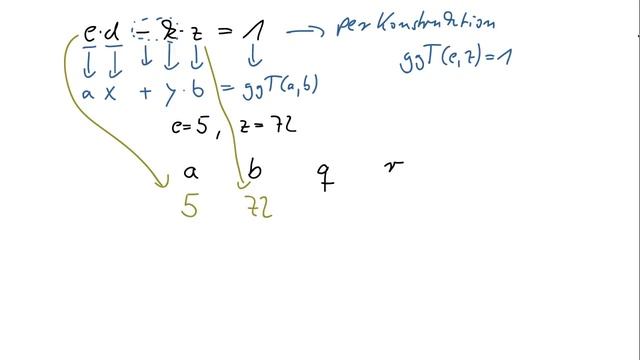 e·d - k·z = 1 → per Konstruktion
ggT(e,z)=1
a x + y·b = ggT(a,b)
e=5, z=72
a b q r
5 72